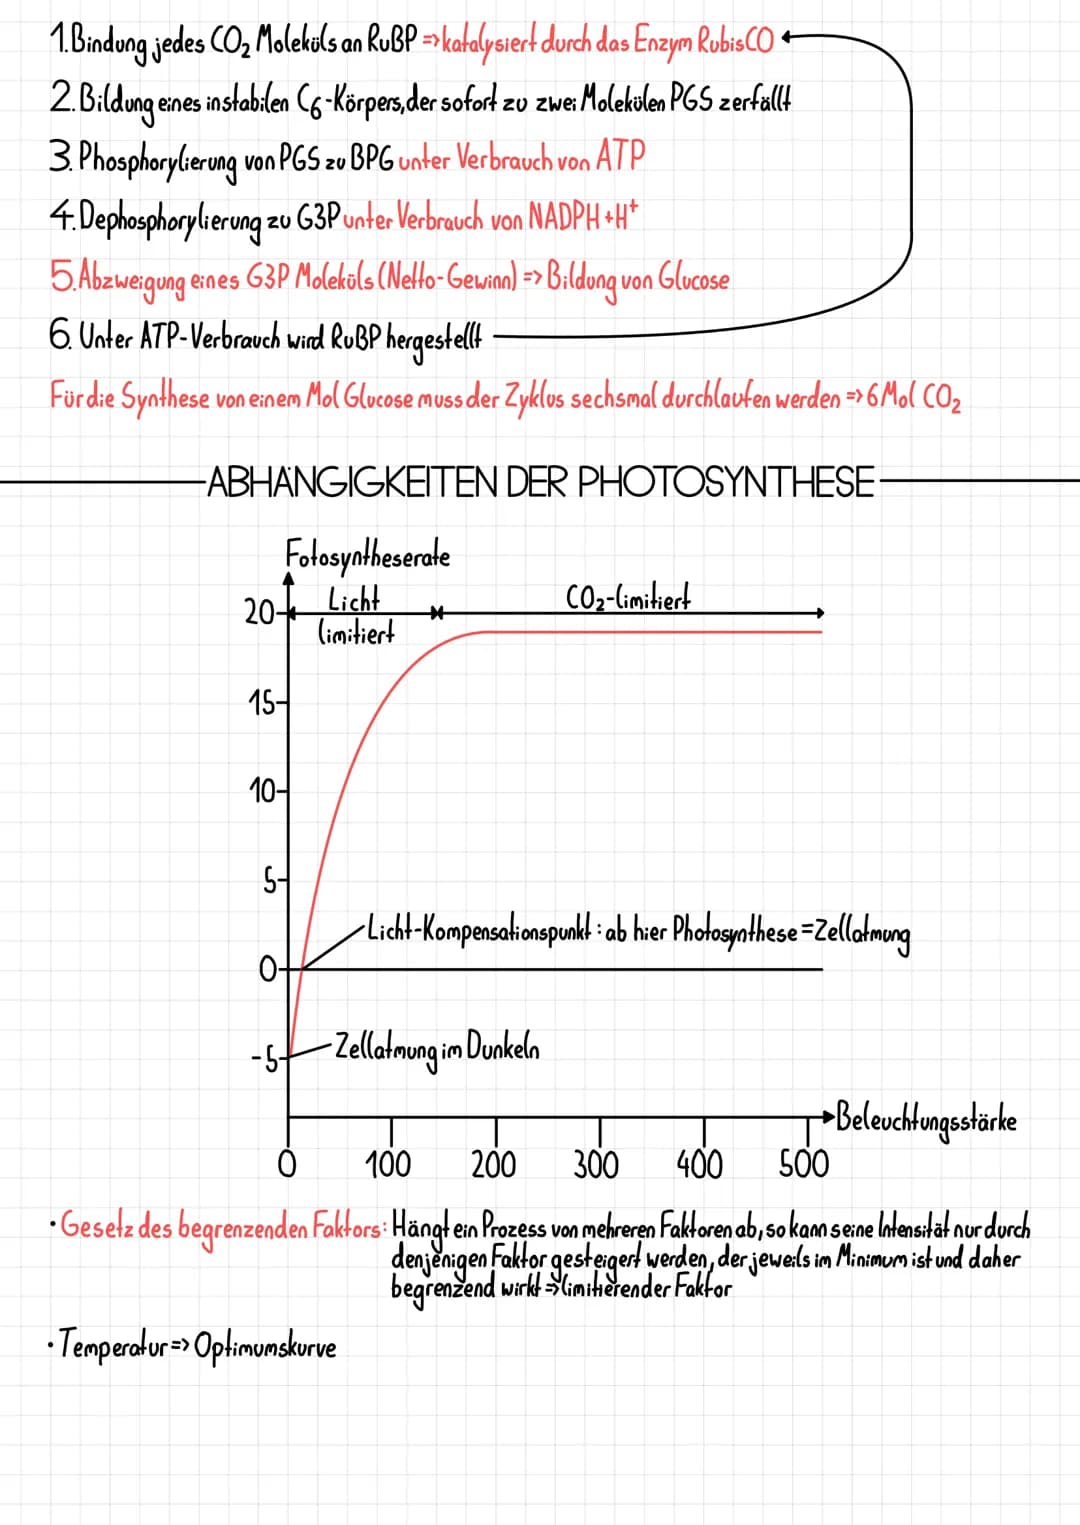 1. Bindung jedes CO₂ Moleküls an RuBP => katalysiert durch das Enzym RubisCO
2. Bildung eines instabilen C₆-Körpers, der sofort zu zwei Molekülen PGS zerfällt
3. Phosphorylierung von PGS zu BPG unter Verbrauch von ATP
4. Dephosphorylierung zu G3P unter Verbrauch von NADPH+H⁺
5. Abzweigung eines G3P Moleküls (Netto-Gewinn) => Bildung von Glucose
6. Unter ATP-Verbrauch wird RuBP hergestellt
Für die Synthese von einem Mol Glucose muss der Zyklus sechsmal durchlaufen werden => 6 Mol CO₂
ABHÄNGIGKEITEN DER PHOTOSYNTHESE
Fotosyntheserate
20 Licht CO₂-limitiert
limitiert
15
10
5
Licht-Kompensationspunkt: ab hier Photosynthese = Zellatmung
0
-5 Zellatmung im Dunkeln
Beleuchtungsstärke
0 100 200 300 400 500
• Gesetz des begrenzenden Faktors: Hängt ein Prozess von mehreren Faktoren ab, so kann seine Intensität nur durch
denjenigen Faktor gesteigert werden, der jeweils im Minimum ist und daher
begrenzend wirkt => limitierender Faktor
• Temperatur => Optimumskurve